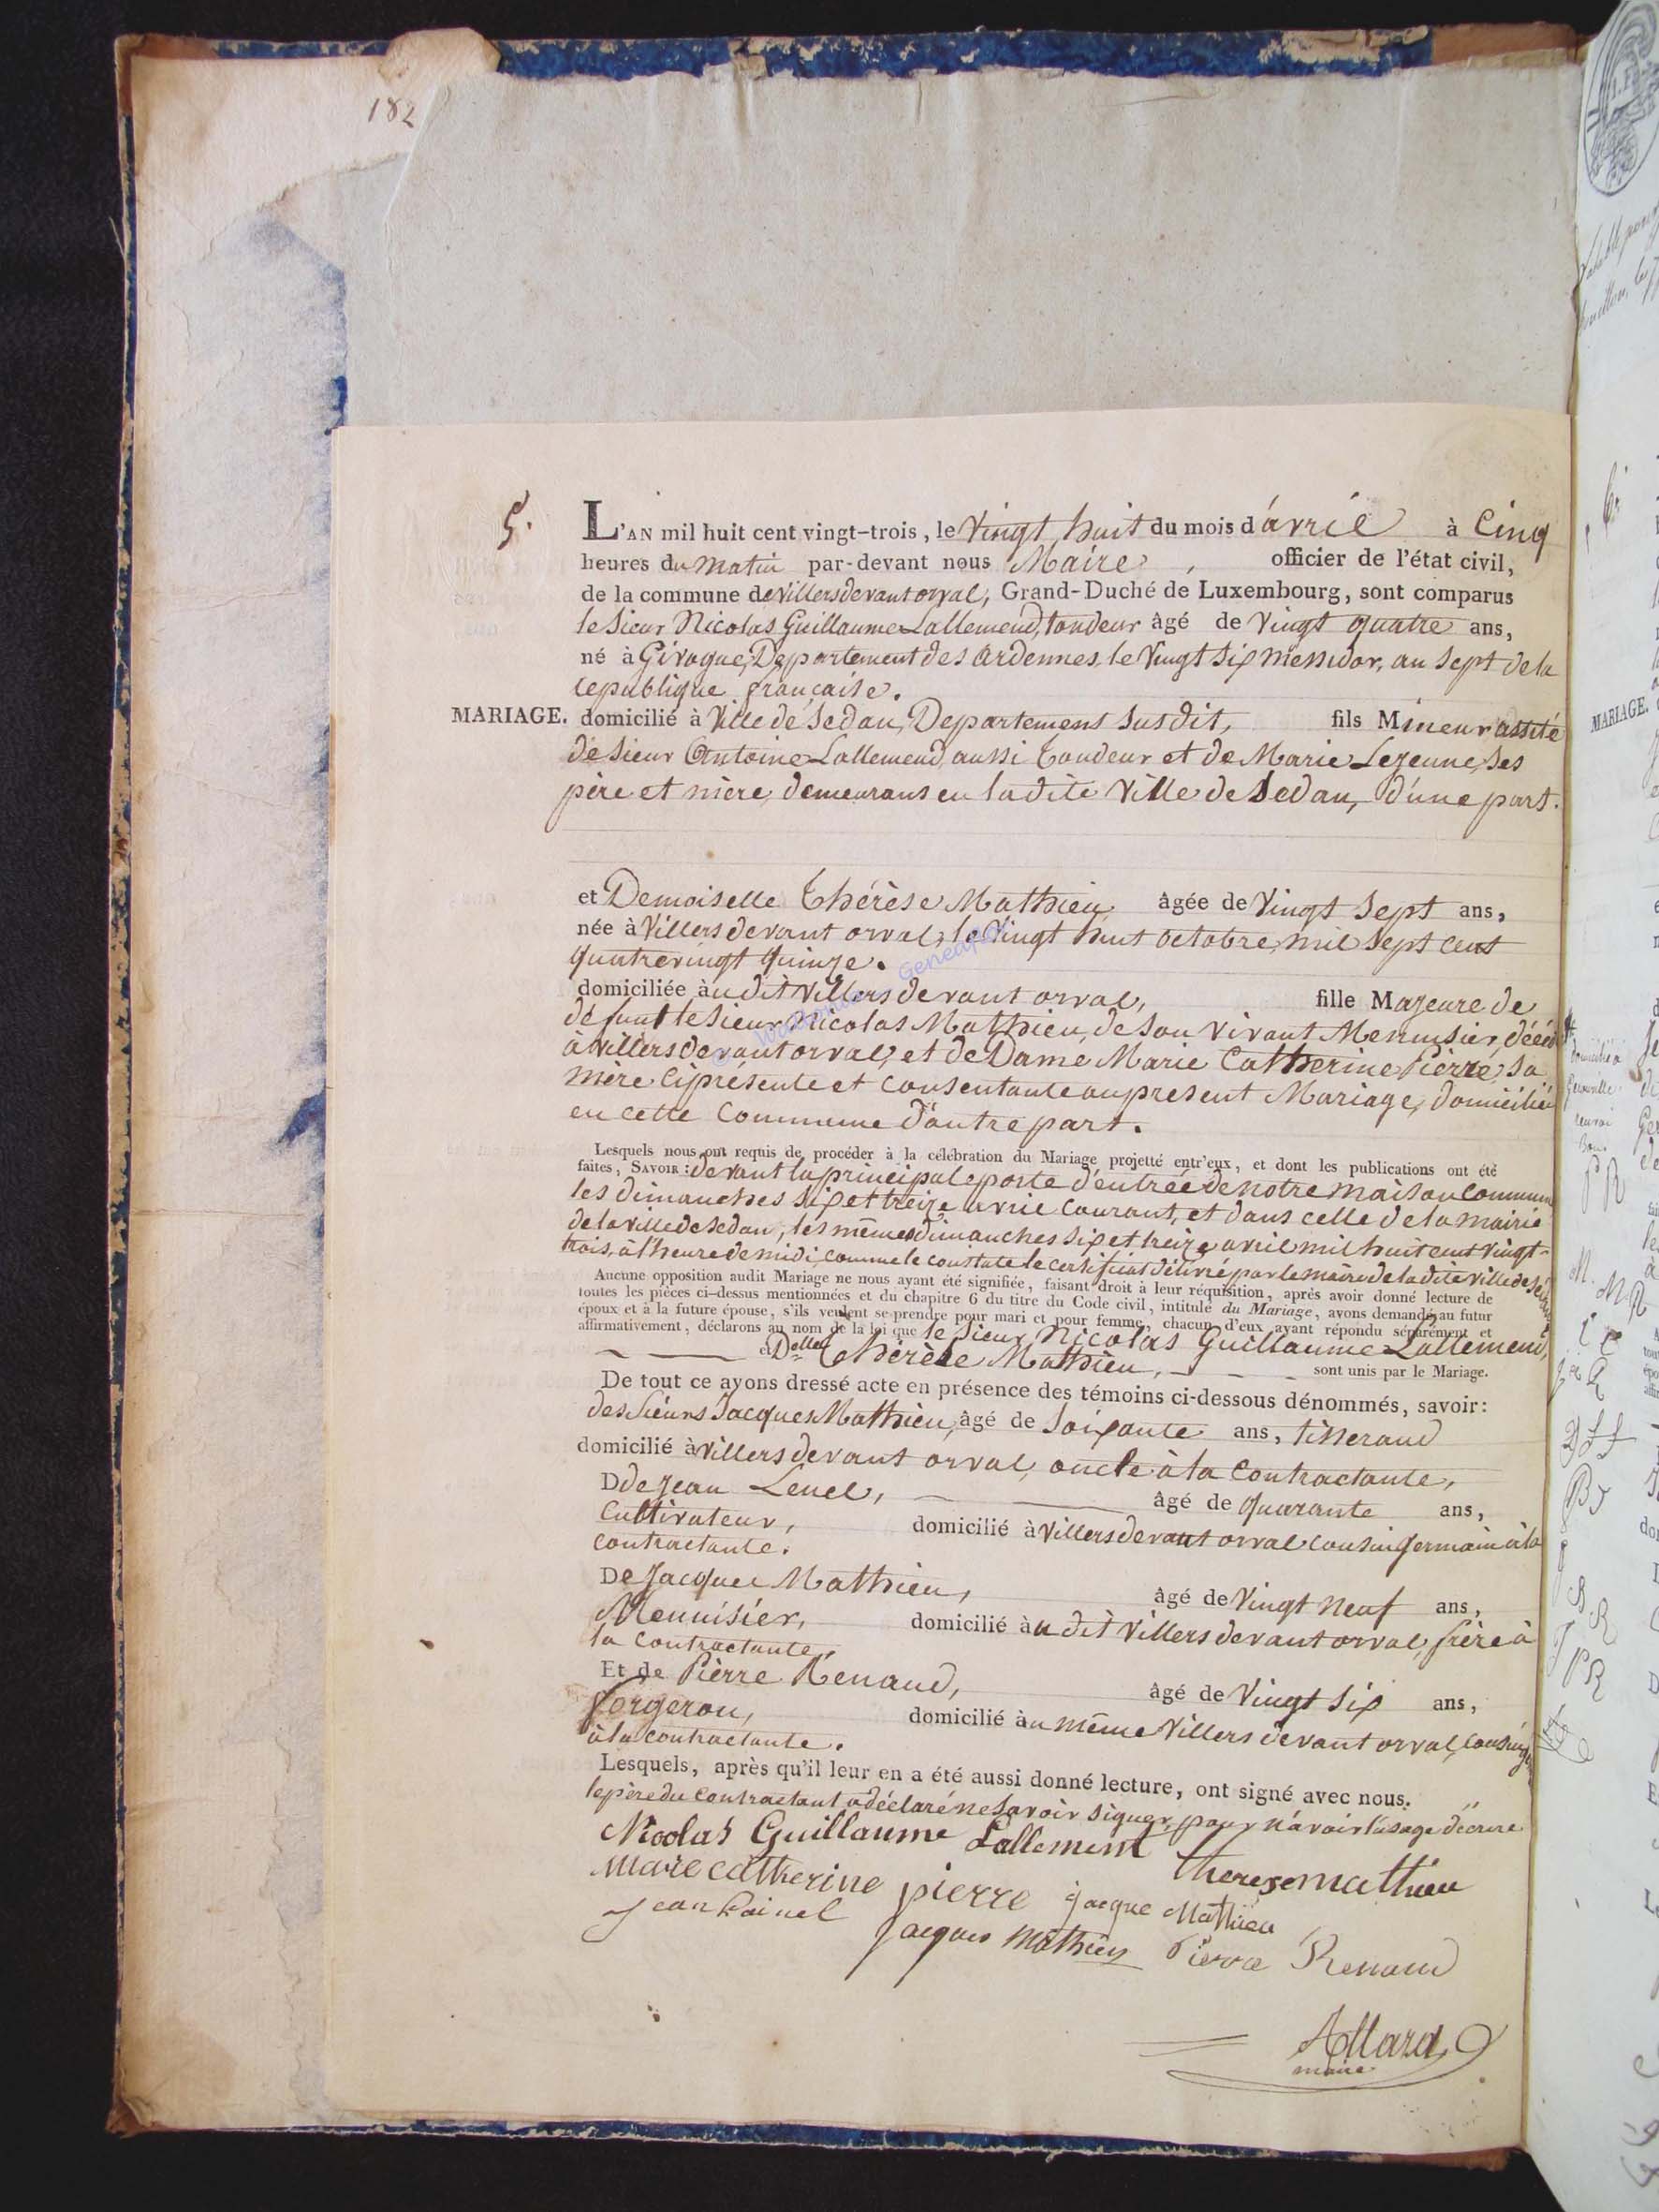 182
5.
L'AN mil huit cent vingt-trois, le Vingt huit du mois d'avril à Cinq
heures du matin par-devant nous Maire, officier de l'état civil,
de la commune de Villers devant orval, Grand-Duché de Luxembourg, sont comparus
le Sieur Nicolas Guillaume Lallemend, tondeur âgé de Vingt quatre ans,
né à Givogne, Departement des Ardennes, le Vingt Six Messidor, an Sept de la
republique française.
MARIAGE. domicilié à Ville de Sedan, Departement Susdit, fils Mineur assité
de Sieur Antoine Lallemend, aussi tondeur et de Marie Lejeune, Ses
père et mère, demeurans en la dite Ville de Sedan, d'une part.
et Demoiselle Thérèse Mathieu, âgée de Vingt Sept ans,
née à Villers devant orval, le Vingt huit octobre, mil Sept cent
quatrevingt quinze.
domiciliée àu dit Villers devant orval, fille Majeure de
défunt le Sieur Nicolas Mathieu, de Son Vivant Menuisier, décédé
à Villers devant orval, et de Dame Marie Catherine Pierre, Sa
mère, ci présente et consentante au present Mariage, domiciliée
en cette Commune d'autre part.
Lesquels nous ont requis de procéder à la célébration du Mariage projetté entr'eux, et dont les publications ont été
faites, SAVOIR : devant la principale porte d'entrée de notre maison Commune
les dimanches Six et treize avril courant, et dans celle de la mairie
de la ville de Sedan, les mêmes dimanches Six et treize avril mil huit cent vingt-
trois, à l'heure de midi, comme le constate le certificat délivré par le maire de la dite ville de Sedan
Aucune opposition audit Mariage ne nous ayant été signifiée, faisant droit à leur réquisition, après avoir donné lecture de
toutes les pièces ci-dessus mentionnées et du chapitre 6 du titre du Code civil, intitulé du Mariage, avons demandé au futur
époux et à la future épouse, s'ils veulent se prendre pour mari et pour femme, chacun d'eux ayant répondu séparément et
affirmativement, déclarons au nom de la loi que le Sieur Nicolas Guillaume Lallemend,
et Delle Thérèse Mathieu, sont unis par le Mariage.
De tout ce avons dressé acte en présence des témoins ci-dessous dénommés, savoir:
des Sieurs Jacques Mathieu, âgé de Soixante ans, tisserand
domicilié à Villers devant orval, oncle à la contractante,
D de Jean Lenel, âgé de quarante ans,
Cultivateur, domicilié à Villers devant orval cousin germain à la
contractante.
De Jacques Mathieu, âgé de Vingt Neuf ans,
Menuisier, domicilié àu dit Villers devant orval, frère à
la contractante,
Et de Pierre Renaud, âgé de Vingt Six ans,
forgeron, domicilié àu même Villers devant orval, cousin
à la contractante.
Lesquels, après qu'il leur en a été aussi donné lecture, ont signé avec nous.
le père du contractant a déclaré ne Savoir Signer, pour n'avoir l'usage d'écrire
Nicolas Guillaume Lallement
therese mathieu
Marie Catherine pierre
jacque Mathieu
jean
Jacques Mathieu
Pierre Renaud
Allard
maire
MARIAGE.